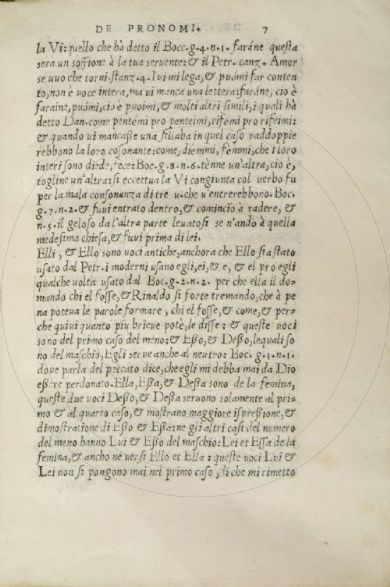 DE PRONOMI. 7
la Vi: quello che hà detto il Bocc. g. 4. n. 1. faráne questa
sera un soffione à la tua seruente: & il Petr. canz. Amor
se uuo che torni. stanz. 4. lui mi lega, & puómi far conten
to, non è uoce intera, ma ui manca una lettera: faráne, cio è
faraine, puómi, cio è puoimi, & molti altri simili, i quali hà
detto Dan. come pentémi pro penteimi, rifémi pro rifeimi:
& quando ui mancasse una sillaba in quel caso raddoppie
rebbono la loro cosonante: come, diemmi, fémmi, che i loro
interi sono diede, fece: Boc. g. 8. n. 6. tènne un'altra, cio è,
togline un'altra: si eccettua la Vi congiunta col uerbo fu
per la mala consonanza di tre u. che u'entrerebbono. Boc.
g. 7. n. 2. & fuui entrato dentro, & comincio à radere, &
n. 5. il geloso da l'altra parte leuatosi se n'andò à quella
medesima chiesa, & fuui prima di lei.
Elli, & Ello sono uoci antiche, anchora che Ello sia stato
usato dal Petr. i moderni usano egli, ei, & e, & el pro egli
qualche uolta usato dal Boc. g. 2. n. 2. per che ella il do
mando chi el fosse, & Rinaldo si forte tremando, che à pe
na poteua le parole formare, chi el fosse, & come, & per-
che quiui quanto piu brieue potè, le disse: & queste uoci
sono del primo caso del meno: & Esso, & Desso, lequali so
no del maschio, Egli serue anche al neutro: Boc. g. 1. n. 1.
doue parla del peccato dice, che egli mi debba mai da Dio
essere perdonato. Ella, Essa, & Dessa sono de la femina,
queste due uoci Desso, & Dessa seruono solamente al pri-
mo & al quarto caso, & mostrano maggiore ispressione, &
dimostratione di Esso & Essa: ne gli altri casi del numero
del meno hanno Lui & Esso del maschio: Lei et Essa de la
femina, & ancho ne uersi Ello et Ella: queste uoci Lui &
Lei non si pongono mai nel primo caso, si che mi rimetto